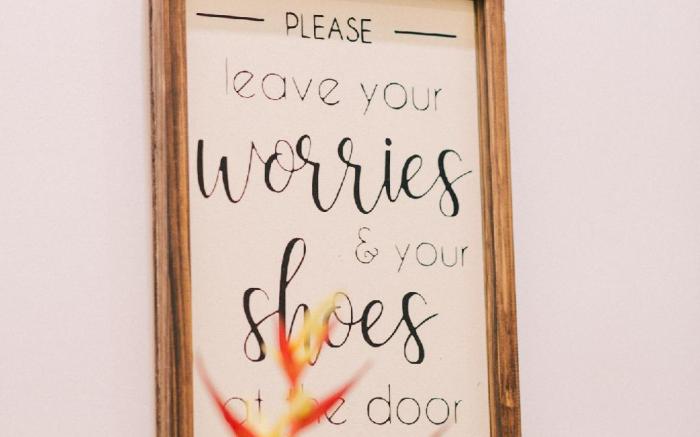 PLEASE
leave your
worries
& your
shoes
at the door